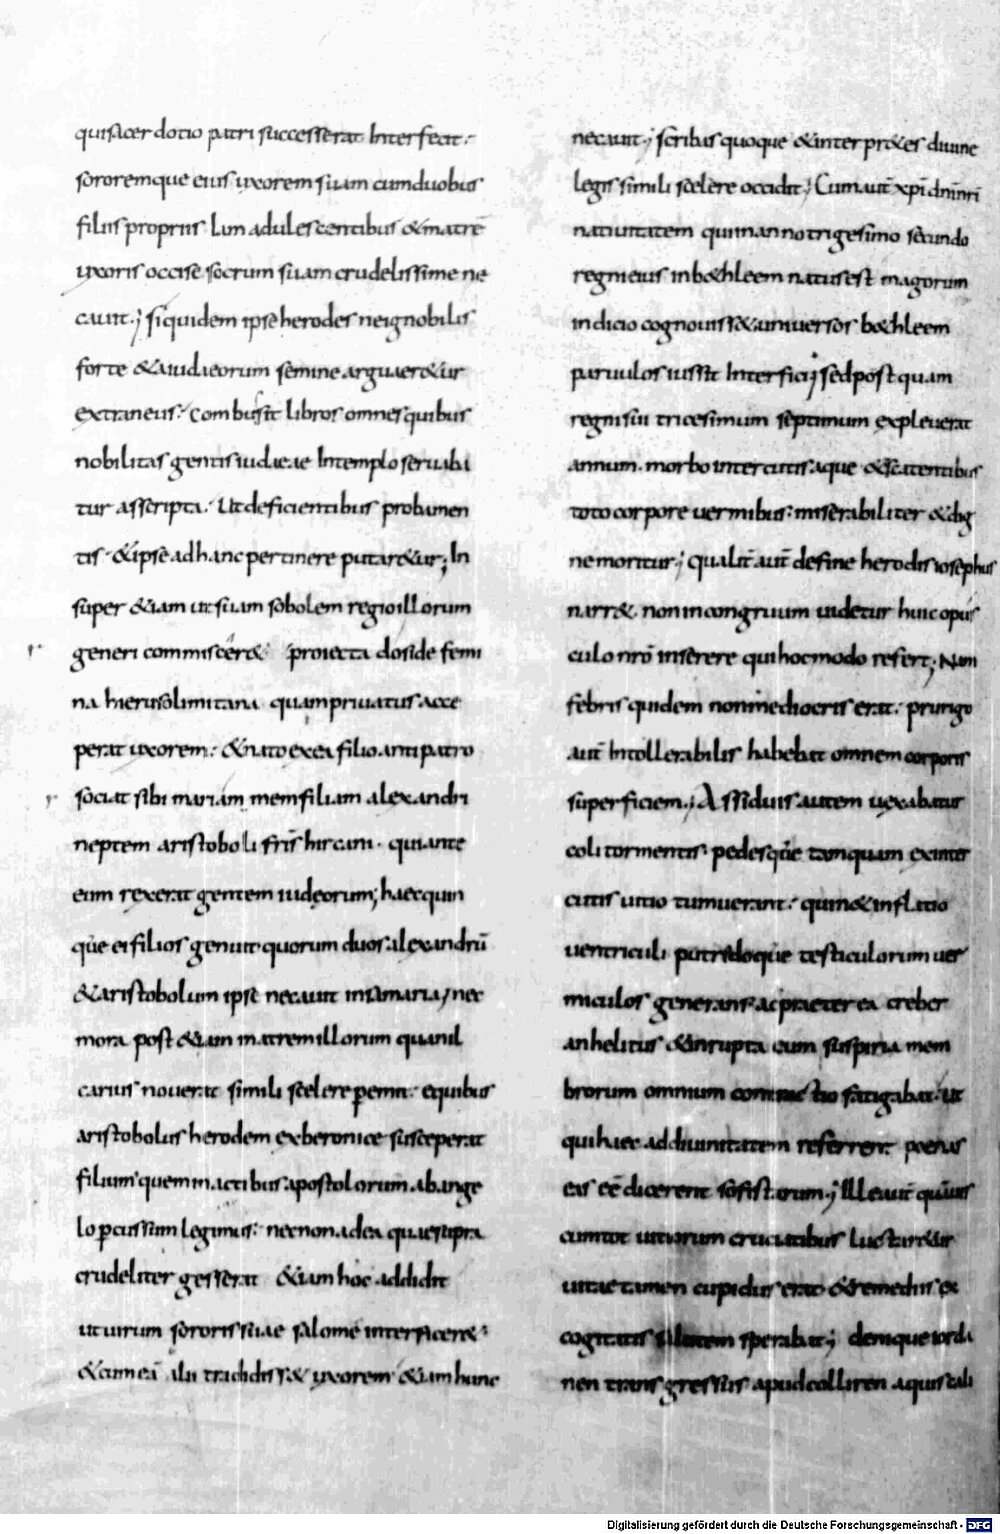 qui sacerdotio patri successerat Interfecit:
sororemque eius uxorem suam cum duobus
filiis propriis Iam adulescentibus & matrē
uxoris occise socrum suam crudelissime ne
cauit; siquidem ipse herodes ne ignobilis
forte & a iudaeorum semine arguaer&ur
extraneus: combusit libros omnes quibus
nobilitas gentis iudaeae In templo seruaba
tur asscripta: Ut deficientibus probamen
tis & ipse ad hanc pertinere putar&ur; In
super &iam ut suam sobolem regio illorum
generi commiscer& proiecta doside femi
na hierusolimitana quam priuatus acce
perat uxorem: & nato ex ea filio antipatro
sociat sibi mariam mem filiam alexandri
neptem aristoboli fr̄is hircani. qui ante
eum rexerat gentem iudeorum; haec quin
que ei filios genuit quorum duos alexandrū
& aristobolum ipse necauit in samaria, nec
mora post &iam matrem illorum qua nil
carius nouerat simili scelere pemit: e quibus
aristobolus herodem ex beronice susceperat
filium quem in actibus apostolorum ab ange
lo pcussum legimus: necnon ad ea quae supra
crudeliter gesserat &iam hoc addidit
ut uirum sororis suae salome interficer&:
& cum eā alii tradidiss& uxorem &iam hunc
necauit; scribas quoque & interpr&es diuine
legis simili scelere occidit; Cum aut̄ xp̄i dn̄i nr̄i
natiuitatem qui in anno trigesimo secundo
regni eius in b&hleem natus est magorum
indicio cognouiss& uniuersos b&hleem
paruulos iussit Interfici; sed postquam
regni sui tricesimum septimum expleuerat
annum. morbo intercutis aque & scatentibus
toto corpore uermibus: miserabiliter & dig
ne moritur; qualit̄ aut̄ de fine herodis iosephus
narr& non incongruum uidetur huic opus
culo nr̄o inserere qui hoc modo refert; Nam
febris quidem non mediocris erat: prurigo
aut̄ Intollerabilis habebat omnem corporis
superficiem; Assiduis autem uexabatur
coli tormentis: pedesque tamquam ex inter
cutis uitio tumuerant: quin & inflatio
uentriculi putredoque testiculorum uer
miculos generans ac praeterea creber
anhelitus & inrupta cum suspiria mem
brorum omnium contractio fatigabat: Ut
qui haec ad diuinitatem referrent poenas
eas eē dicerent sofistarum; Ille aut̄ quāuis
cum tot uitiorum cruciatibus luctar&ur
uitae tamen cupidus erat & remediis ex
cogitatis salutem sperabat; denique iorda
nen transgressus apud colliren aquis cali